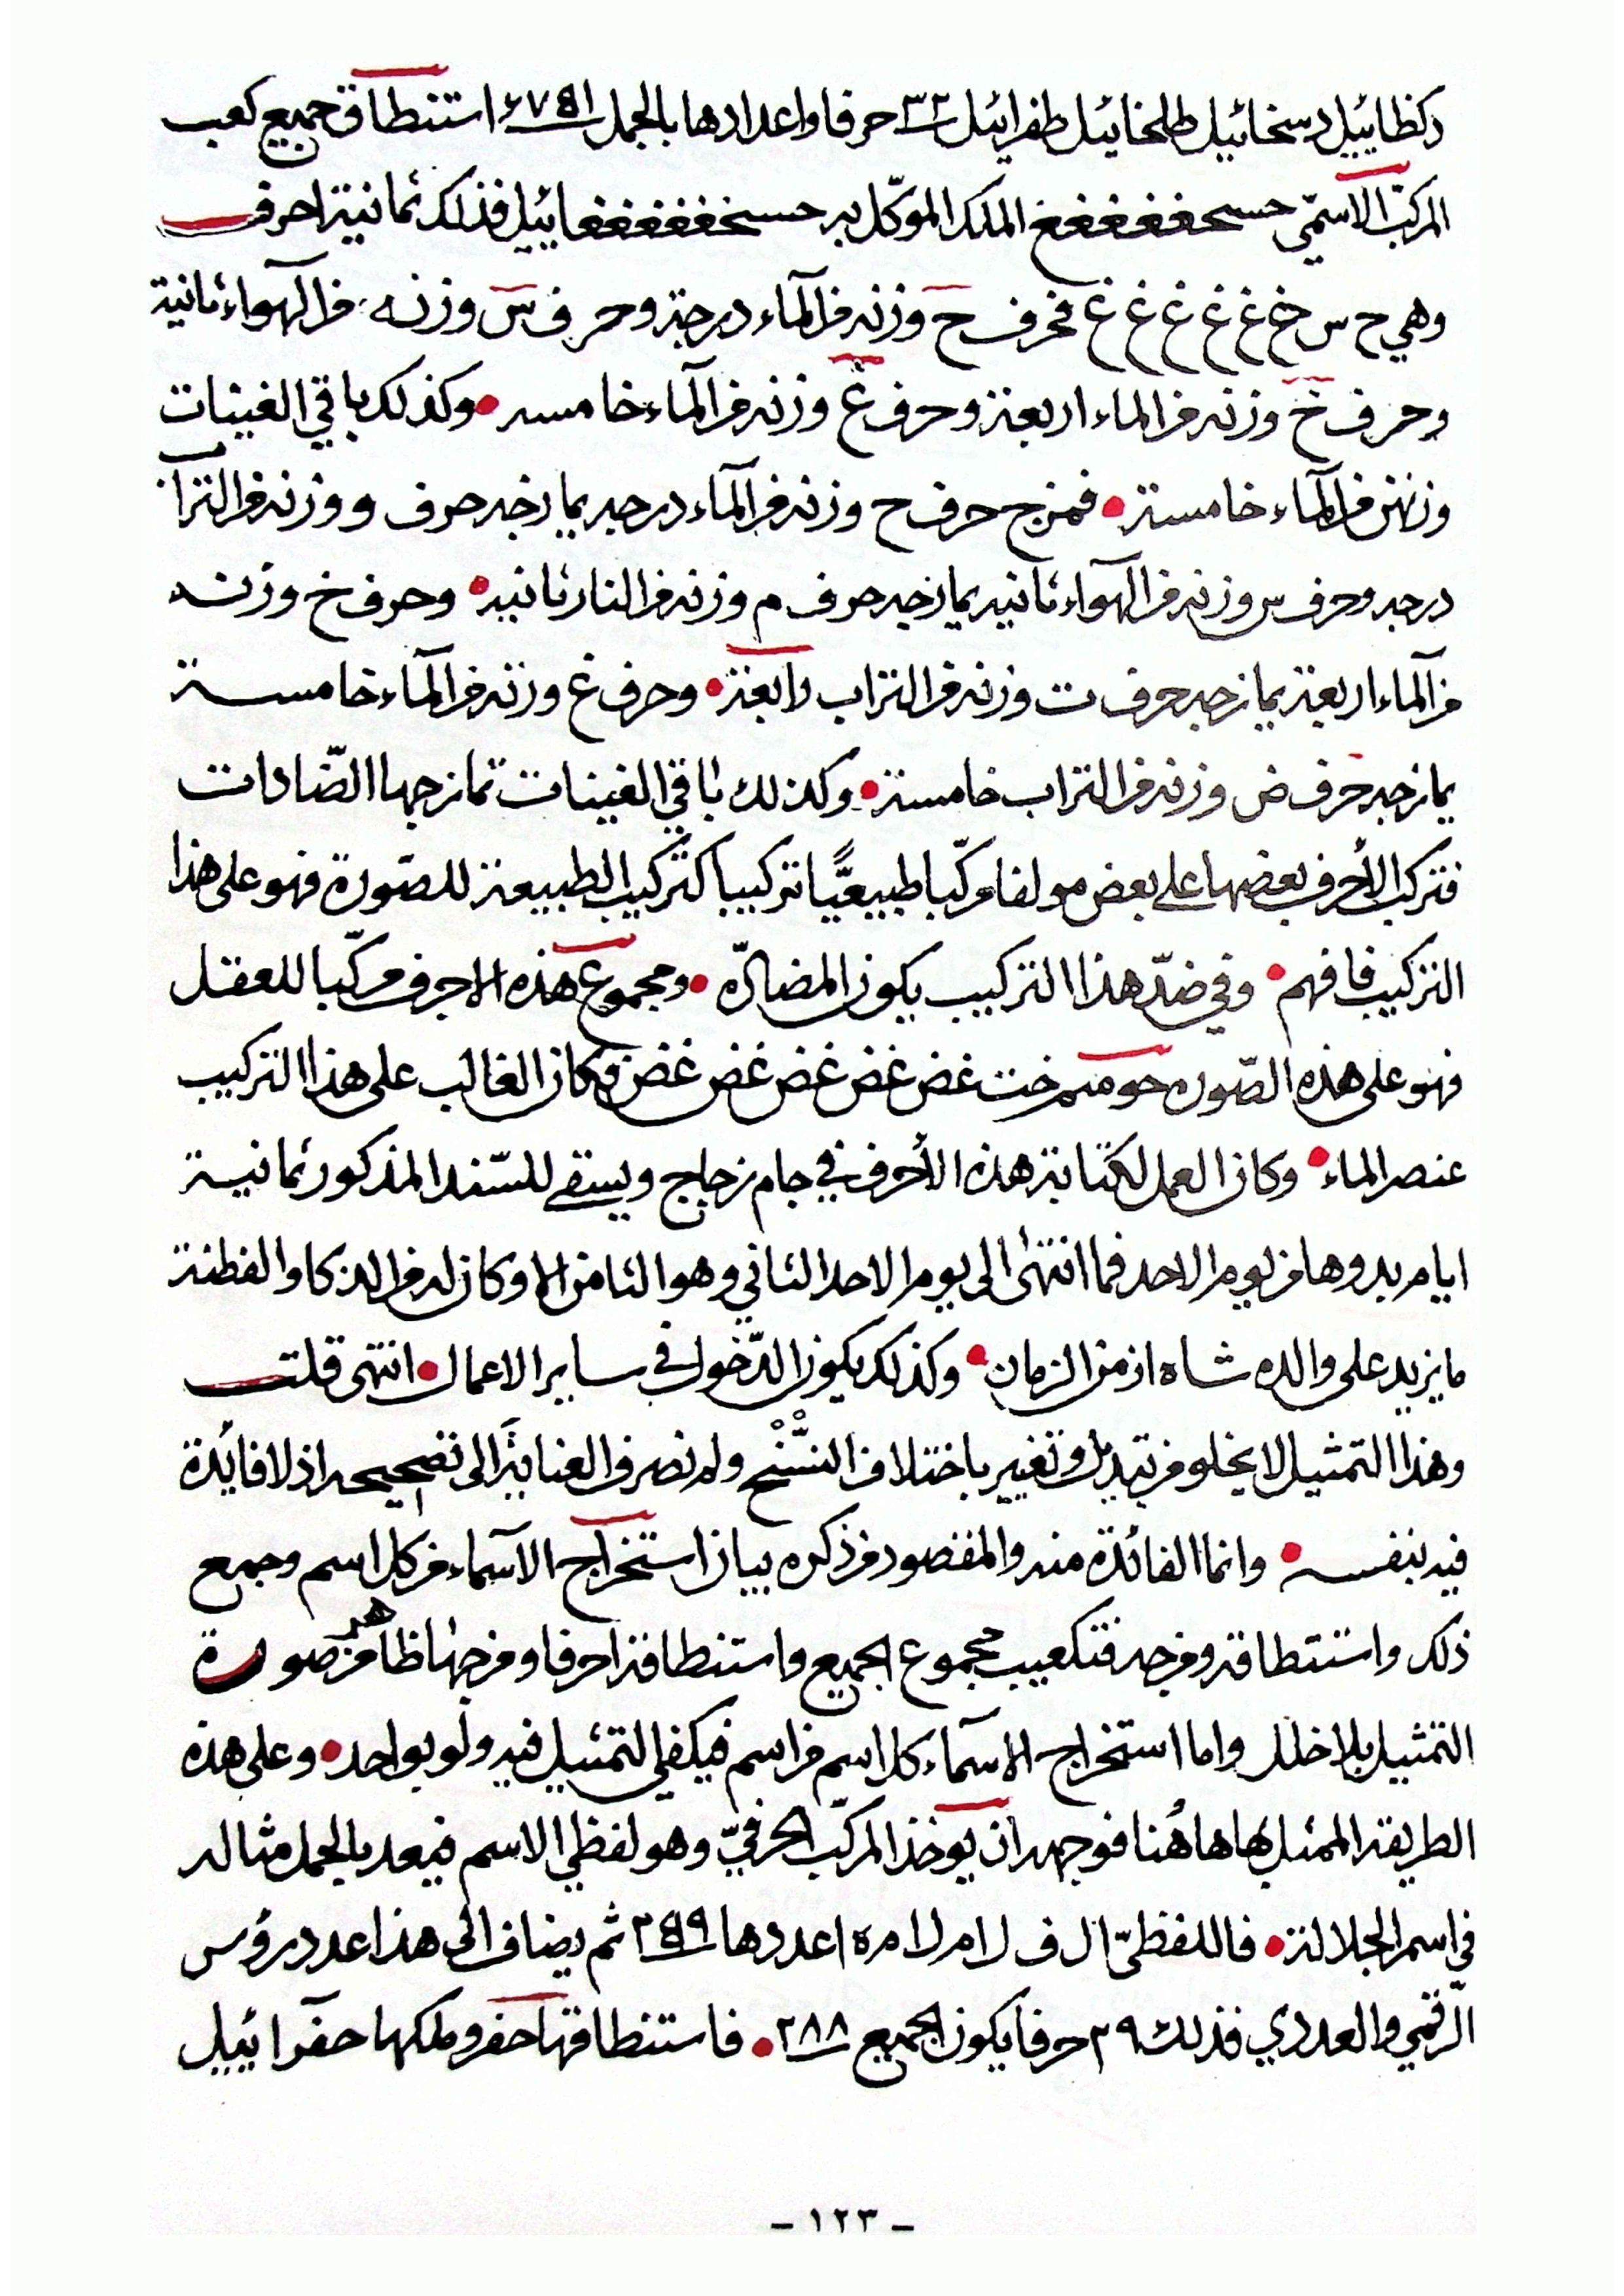 دكظاييل دسخائيل طلخائيل طفرائيل ٣٢ حرفا واعدادها بالجمل ٦٧٥١ استنطاق جميع كعب
المركب الاسمّي حسخغغغغغ الملك الموكّل به حسخغغغغغاييل فذلك ثمانية احرف
وهي ح س خ غ غ غ غ غ فحرف ح وزنه من المآء درجة وحرف س وزنه من الهوآء ثانية
وحرف خ وزنه من الماء اربعة وحرف غ وزنه من المآء خامسه • وكذلك باقي الغينات
وزنهن من المآء خامسة • فمزج حرف ح وزنه من المآء درجه يمازجه حرف و وزنه من التراب
درجه وحرف س وزنه من الهوآء ثانيه يمازجه حرف م وزنه من النار ثانيه • وحرف خ وزنه
من المآء اربعة يمازجه حرف ت وزنه من التراب رابعة • وحرف غ وزنه من المآء خامسة
يمازجه حرف ض وزنه من التراب خامسة • وكذلك باقي الغينات تمازجها الضّادات
فتركب الأحرف بعضها على بعض مولفا مركّبا طبيعيًّا تركيبا كتركيب الطبيعة للصّورة فهو على هذا
التركيب فافهم • وفي ضدّ هذا التركيب يكون المضادّه • ومجموع هذه الاحرف مركّبا للعقل
فهو على هذه الصّوره حو سم خت غض غض غض غض غض فكان الغالب على هذا التركيب
عنصر الماء • وكان العمل لكتابة هذه الأحرف في جام زجاج ويسقى للسّفه المذكور ثمانية
ايام بدوها من يوم الاحد فما انتهى الى يوم الاحد الثاني وهو الثامن الا وكان له من الذكا والفطنة
ما يزيد على والده شاه ازمن الزمان • وكذلك يكون الدّخول في ساير الاعمال • انتهى قلت
وهذا التمثيل لا يخلو من تبديل وتغيير باختلاف النسّخ ولم نصرف العناية الى تصحيحه اذ لا فائدة
فيه بنفسه • وانما الفائدة منه والمقصود من ذكره بيان استخراج الاسمآء من كل اسم وجمع
ذلك واستنطاقه ومزجه فتكعيب مجموع الجميع واستنطاقه احرفا ومزجها ظاهر من صورة
التمثيل بلا خلل واما استخراج الاسمآء كل اسم من اسم فيكفي التمثيل فيه ولو بواحد • وعلى هذه
الطريقة الممثل بها هاهُنا فوجهه ان يوخذ المركّب الحرفيّ وهو لفظي الاسم فيعد بالجمل مثاله
في اسم الجلالة • فاللفظيّ ال ف ل ا م ل ا م ه ا عددها ٢٥٩ ثم يضاف الى هذا عدد رؤس
الرّقمي والعددي فذلك ٢٩ حرفا يكون الجميع ٢٨٨ • فاستنطاقها حفر وملكها حفرائيل
- ١٢٣ -